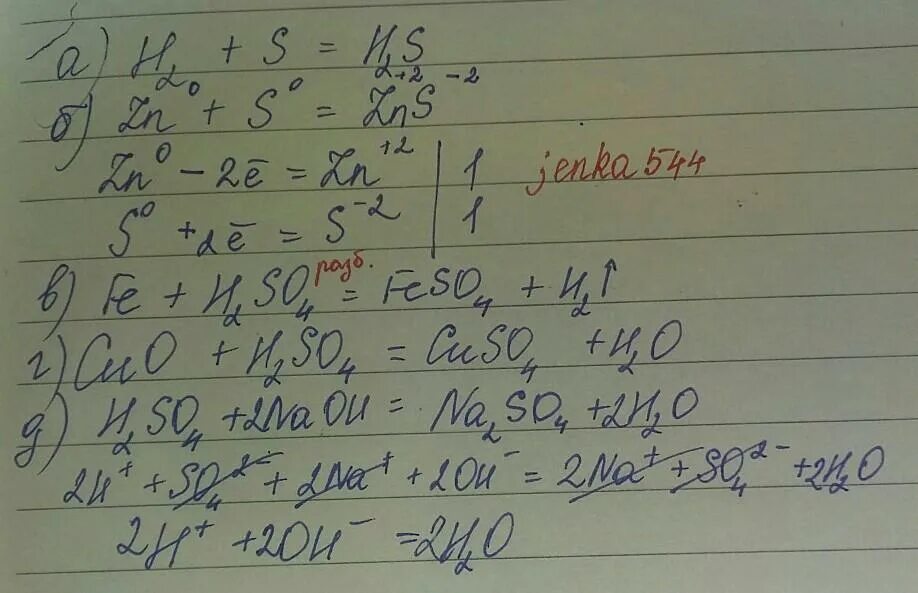 а) H₂ + S = H₂S
б) Zn⁰ + S⁰ = Zn⁺²S⁻²
Zn⁰ − 2ē = Zn⁺² | 1 jenka544
S⁰ + 2ē = S⁻² | 1
в) Fe + H₂SO₄ разб. = FeSO₄ + H₂↑
г) CuO + H₂SO₄ = CuSO₄ + H₂O
д) H₂SO₄ + 2NaOH = Na₂SO₄ + 2H₂O
2H⁺ + SO₄²⁻ + 2Na⁺ + 2OH⁻ = 2Na⁺ + SO₄²⁻ + 2H₂O
2H⁺ + 2OH⁻ = 2H₂O